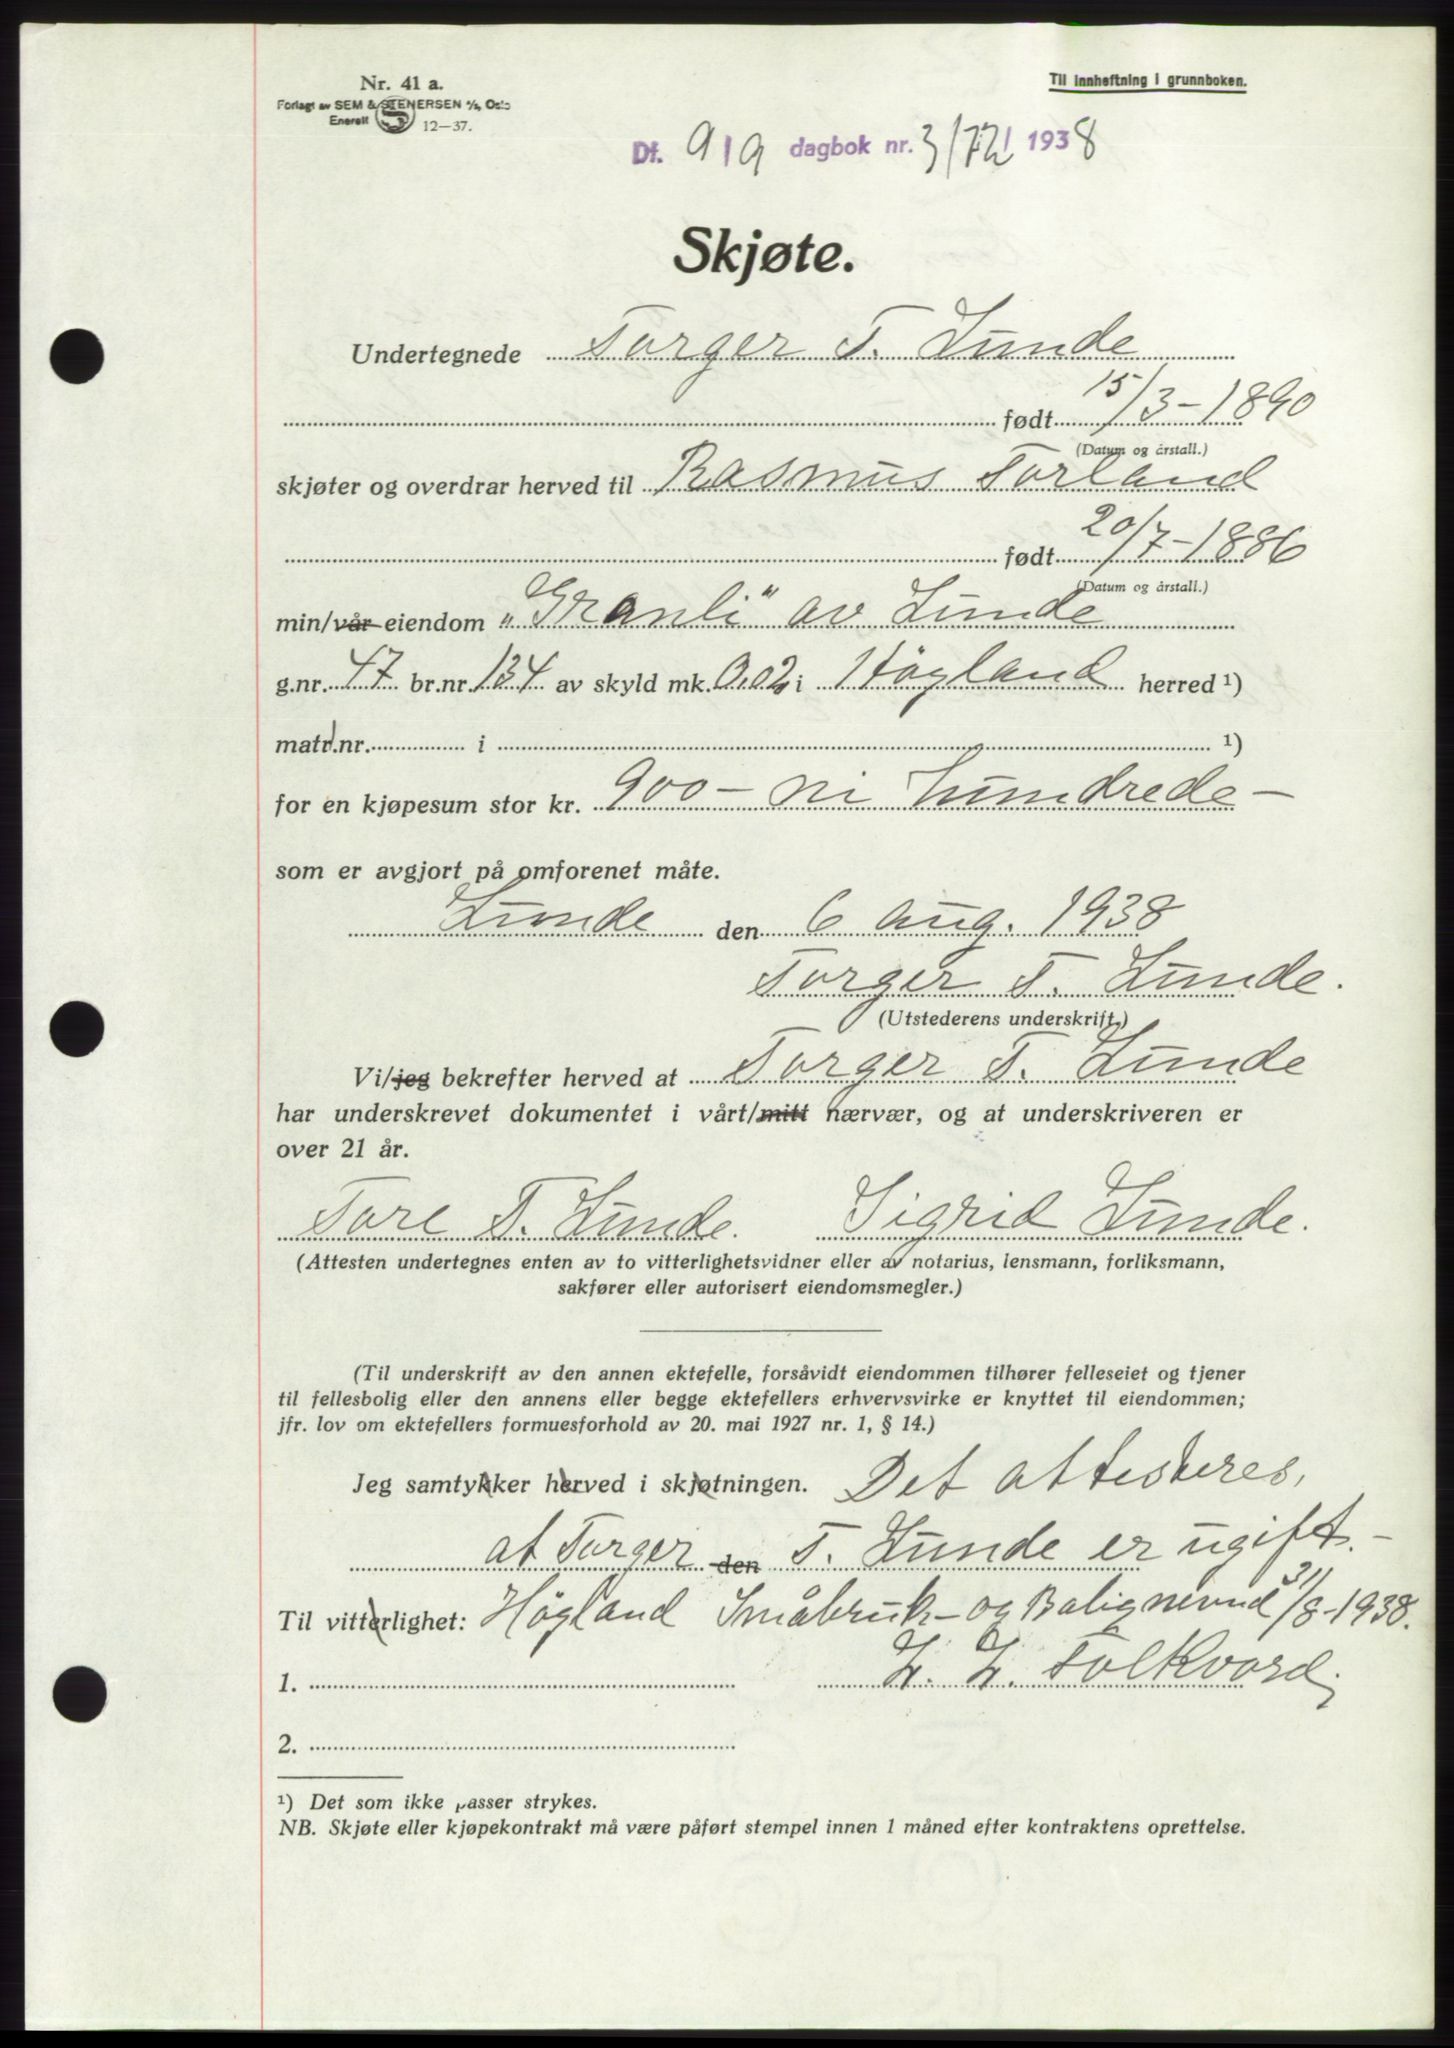 Nr. 41 a.
Forlagt av SEM & STENERSEN A/S, Oslo
Enerett 12—37.
Til innheftning i grunnboken.
Df. 9/9 dagbok nr. 3172/ 1938
Skjøte.
Undertegnede Torger T. Lunde
født 15/3-1890
(Datum og årstall.)
skjøter og overdrar herved til Rasmus Torland
født 20/7-1886
(Datum og årstall.)
min/vår eiendom „Granli" av Lunde
g.nr. 47 br.nr. 134 av skyld mk. 0.02 i Högland herred ¹)
matr.nr. i ¹)
for en kjøpesum stor kr. 900 — ni hundrede —
som er avgjort på omforenet måte.
Lunde den 6 aug. 1938
Torger T. Lunde.
(Utstederens underskrift.)
Vi/jeg bekrefter herved at Torger T. Lunde
har underskrevet dokumentet i vårt/mitt nærvær, og at underskriveren er
over 21 år.
Tore T. Lunde. Sigrid Lunde.
(Attesten undertegnes enten av to vitterlighetsvidner eller av notarius, lensmann, forliksmann,
sakfører eller autorisert eiendomsmegler.)
(Til underskrift av den annen ektefelle, forsåvidt eiendommen tilhører felleseiet og tjener
til fellesbolig eller den annens eller begge ektefellers erhvervsvirke er knyttet til eiendommen;
jfr. lov om ektefellers formuesforhold av 20. mai 1927 nr. 1, § 14.)
Jeg samtykker herved i skjøtningen. Det attesteres,
at Torger den T. Lunde er ugift.-
Til vitterlighet: Högland Småbruk- og Bolignevnd 31/8-1938.
1. Folkvord.
2.
¹) Det som ikke passer strykes.
NB. Skjøte eller kjøpekontrakt må være påført stempel innen 1 måned efter kontraktens oprettelse.